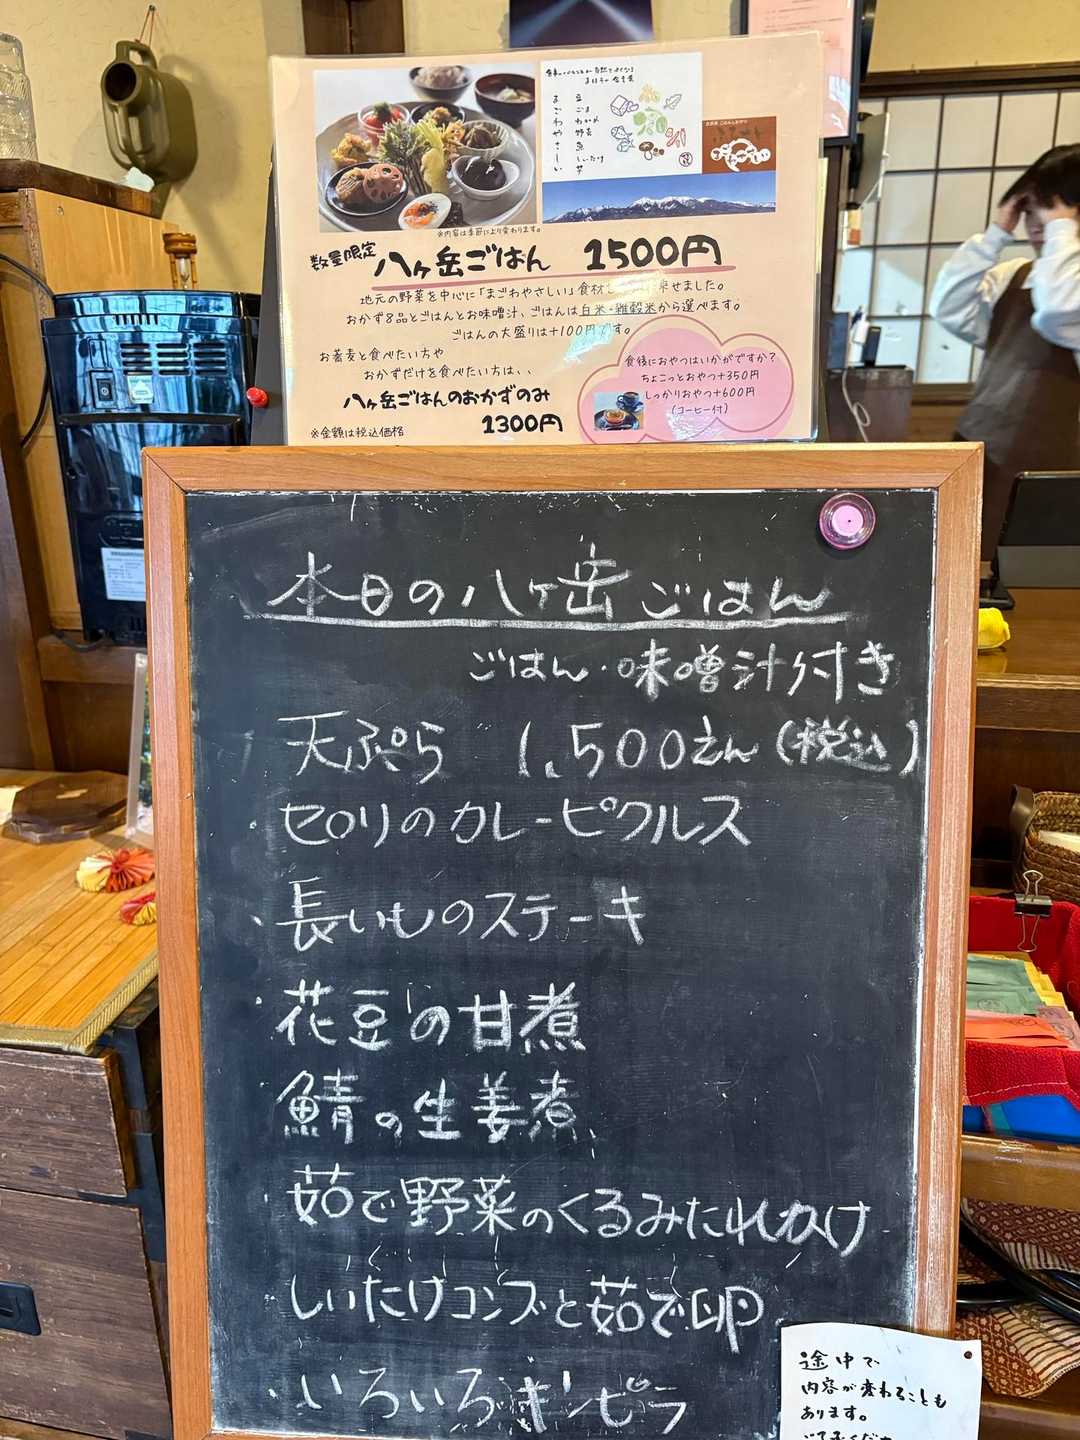 ま 豆
ご ごま
わ わかめ
や 野菜
さ 魚
し しいたけ
い 芋
※内容は季節により変わります。
数量限定 八ヶ岳ごはん 1500円
地元の野菜を中心に「まごわやさしい」食材を 乗せました。
おかず8品とごはんとお味噌汁、ごはんは白米・雑穀米から選べます。
ごはんの大盛りは+100円です。
お蕎麦と食べたい方や
おかずだけを食べたい方は、、
八ヶ岳ごはんのおかずのみ
1300円
※金額は税込価格
食後におやつはいかがですか?
ちょこっとおやつ+350円
しっかりおやつ+600円
(コーヒー付)
本日の八ヶ岳ごはん
ごはん・味噌汁付き
天ぷら 1,500えん(税込)
・セロリのカレーピクルス
・長いものステーキ
・花豆の甘煮
鯖の生姜煮
・茹で野菜のくるみたれかけ
しいたけコンブと茹で卵
・いろいろキンピラ
途中で
内容が変わることも
あります。